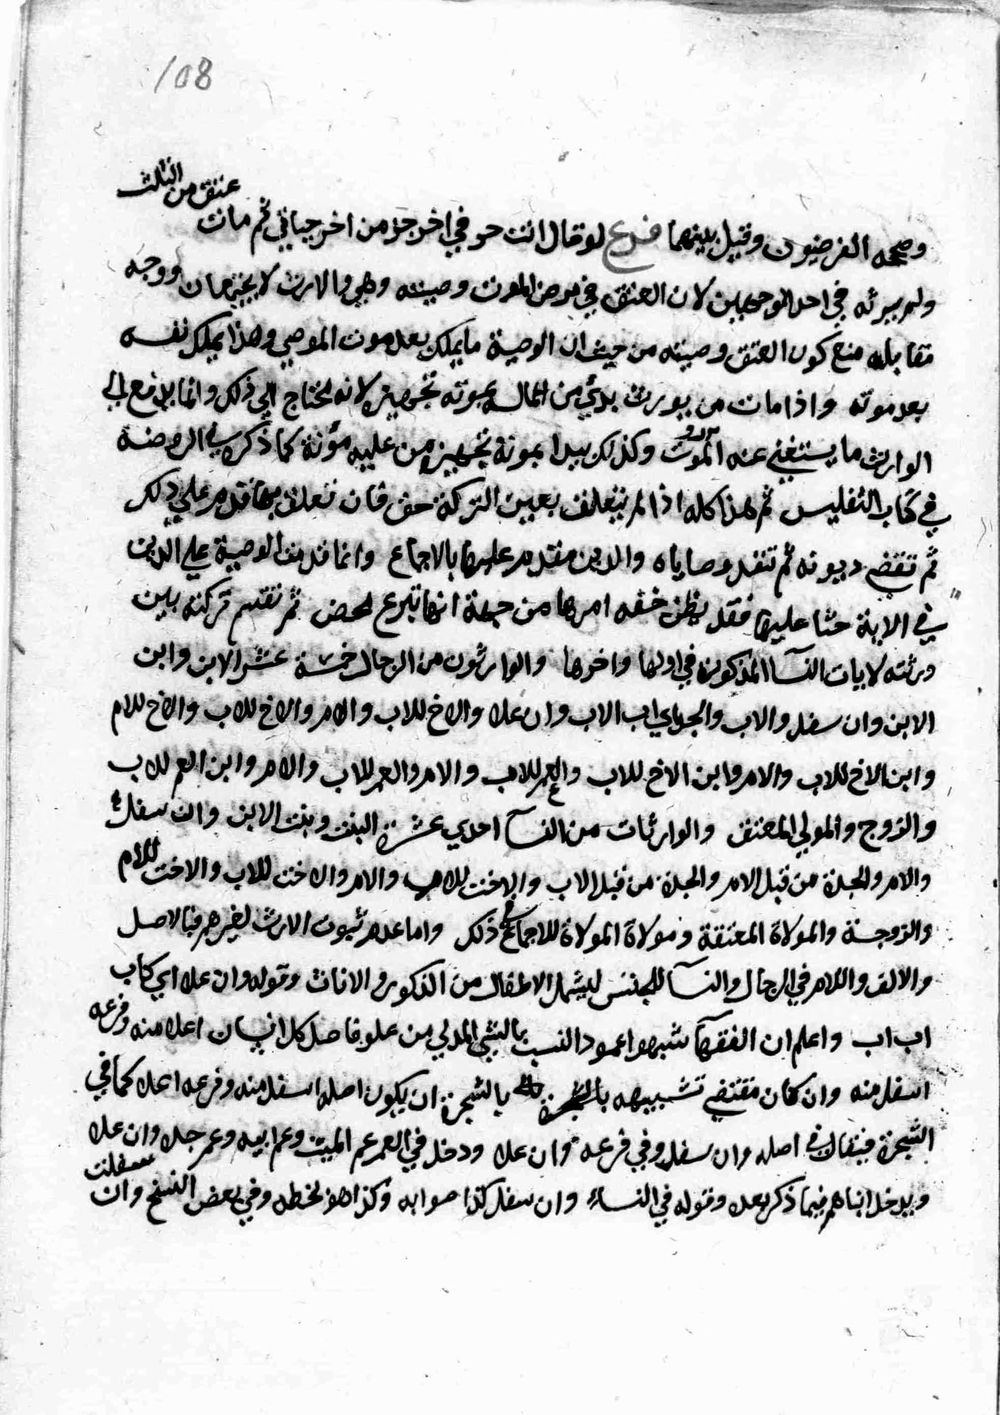 108
وصححه الفرضيون وقيل بينهما فرع لو قال انت حر في اخر جزء من اخر حياتي ثم مات عتق من الثلث
ولم يرثه في احد الوجهين لان العتق في مرض الموت وصية وهي والارث لا يجتمعان ووجه
مقابله منع كون العتق وصية من حيث ان الوصية ما يملك بعد موت الموصي وهذا يملك نفسه
بعد موته واذا مات من يورث بدئ من المال بمونة تجهيزه لانه يحتاج الي ذلك وانما يدفع الي
الوارث ما يستغني عنه الموروث وكذلك يبدا بمونة تجهيز من عليه مؤنة كما ذكره في الروضة
في كتاب التفليس ثم هذا كله اذا لم يتعلق بعين التركة حق فان تعلق بها قدم علي ذلك
ثم تقضي ديونه ثم تنفذ وصاياه والدين مقدم عليها بالاجماع وانما قدمت الوصية علي الدين
في الاية حثا عليها فقد يظن خفة امرها من جهة انها تبرع محض ثم تقسم تركته بين
ورثته لايات النسآ المذكورة في اولها واخرها والوارثون من الرجال خمسة عشر الابن وابن
الابن وان سفل والاب والجد اي اب الاب وان علا والاخ للاب والام والاخ للاب والاخ للام
وابن الاخ للاب والام وابن الاخ للاب والعم للاب والام والعم للاب والام وابن العم للاب
والزوج والمولي المعتق والوارثات من النسآ احدي عشرة البنت وبنت الابن وان سفلت
والام والجدة من قبل الام والجدة من قبل الاب والاخت للاب والام والاخت للاب والاخت للام
والزوجة والمولاة المعتقة ومولاة المولاة للاجماع في ذلك واما عدم ثبوت الارث لغيرهم فبالاصل
والالف واللام في الرجال والنسآ للجنس ليشمل الاطفال من الذكور والاناث وقوله وان علا اي كاب
اب اب واعلم ان الفقهآ شبهوا عمود النسب بالشي المدلي من علو فاصل كل انسان اعلا منه وفرعه
اسفل منه وان كان مقتضي تشبيهه بالشجرة ان يكون اصله اسفل منه وفرعه اعلا كما في
الشجرة فيقال في اصله وان سفل وفي فرعه وان علا ودخل في العم عم الميت وعم ابيه وعم جده وان علا
ويدخل ابناهم فيما ذكر بعد وقوله في النساء وان سفل كذا صوابه وكذا هو بخطه وفي بعض النسخ وان سفلت